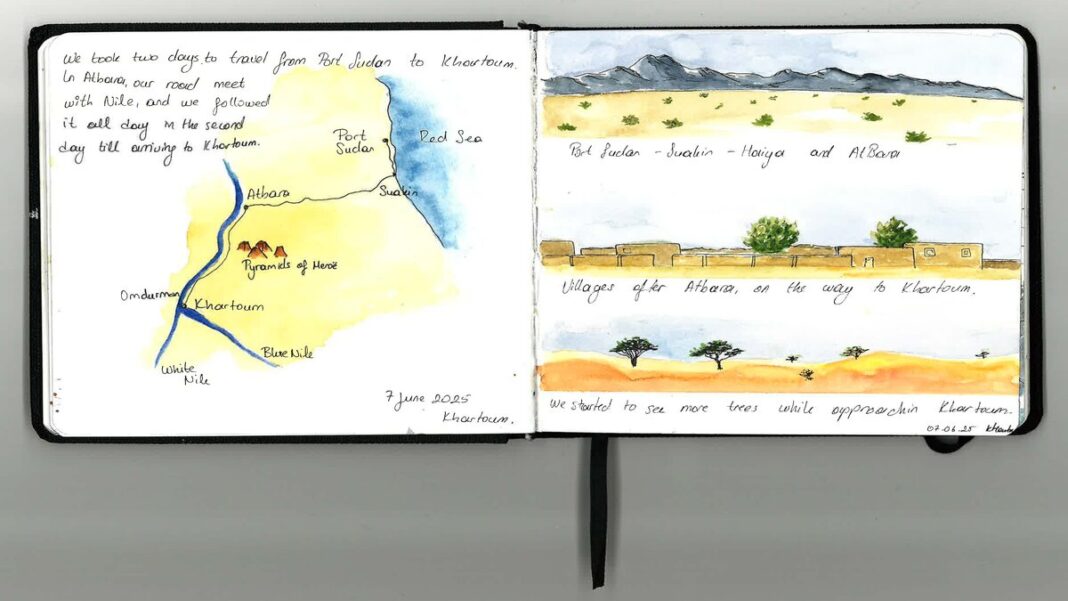 We took two days to travel from Port Sudan to Khartoum.
In Atbara, our road meet
with Nile, and we followed
it all day in the second
day till arriving to Khartoum.
Port
Sudan
Red Sea
Suakin
Atbara
Pyramids of Meroë
Omdurman
Khartoum
Blue Nile
White
Nile
7 June 2025
Khartoum.
Port Sudan - Suakin - Haiya and AtBara
Villages after Atbara, on the way to Khartoum.
We started to see more trees while approachin Khartoum.
07.06.25